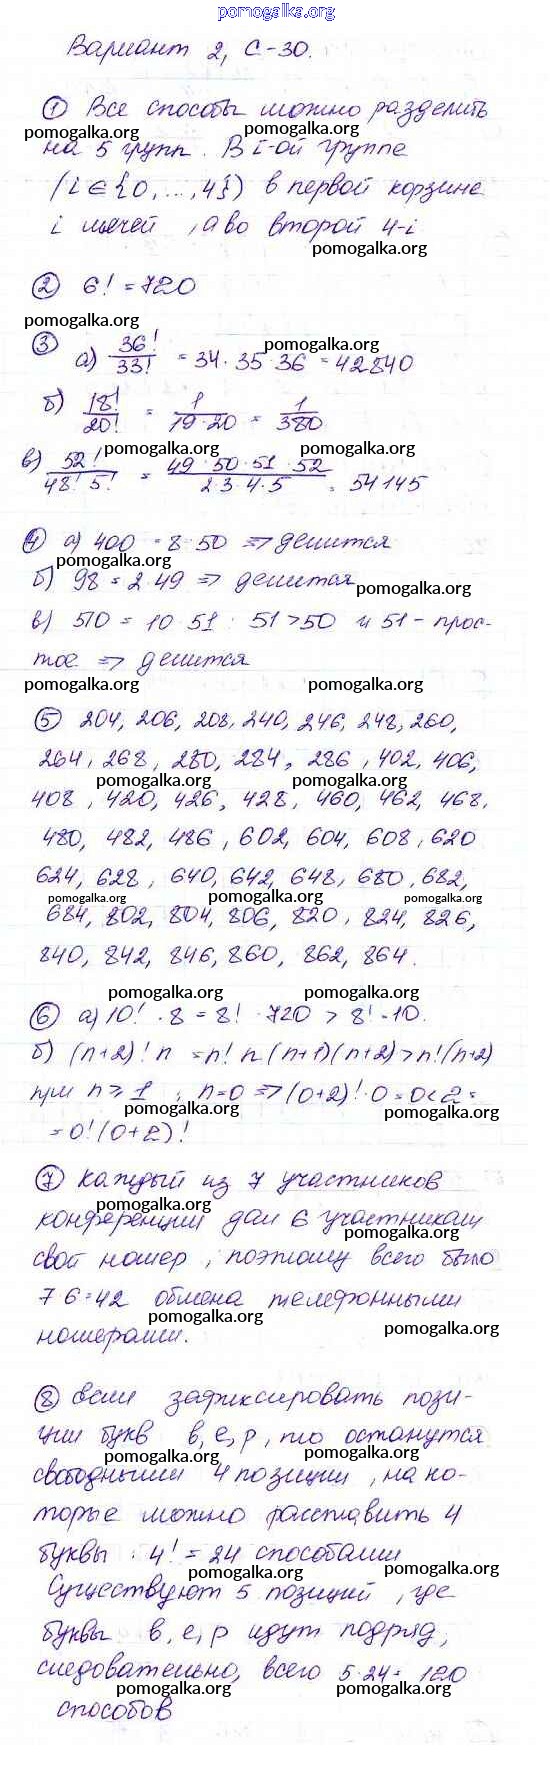 pomogalka.org
Вариант 2, С-30.
① Все способы можно разделить
pomogalka.org pomogalka.org
на 5 групп. В i-ой группе
(i ∈ {0, ..., 4}) в первой корзине
i мячей, а во второй 4-i
pomogalka.org
② 6! = 720
pomogalka.org
③ а) 36!/33! = 34 · 35 · 36 = 42840
pomogalka.org
б) 18!/20! = 1/(19 · 20) = 1/380
pomogalka.org pomogalka.org
в) 52!/(48! 5!) = (49 · 50 · 51 · 52)/(2 · 3 · 4 · 5) = 54145
④ а) 400 = 8 · 50 => делится
pomogalka.org
б) 98 = 2 · 49 => делится
pomogalka.org
в) 510 = 10 · 51 : 51 > 50 и 51 - прос-
тое => делится
pomogalka.org pomogalka.org
⑤ 204, 206, 208, 240, 246, 248, 260,
264, 268, 280, 284, 286, 402, 406,
pomogalka.org pomogalka.org
408, 420, 426, 428, 460, 462, 468,
480, 482, 486, 602, 604, 608, 620
624, 628, 640, 642, 648, 680, 682,
pomogalka.org pomogalka.org pomogalka.org
684, 802, 804, 806, 820, 824, 826,
840, 842, 846, 860, 862, 864.
pomogalka.org pomogalka.org
⑥ а) 10! · 8 = 8! · 720 > 8! · 10.
б) (n+2)! n = n! n (n+1)(n+2) > n!(n+2)
при n ⩾ 1 ; n=0 => (0+2)! · 0 = 0 < 2 =
pomogalka.org pomogalka.org
= 0! (0+2)!
⑦ Каждый из 7 участников
pomogalka.org
конференции дал 6 участникам
pomogalka.org
свой номер, поэтому всего было
7 · 6 = 42 обмена телефонными
pomogalka.org pomogalka.org
номерами.
⑧ Если зафиксировать пози-
ции букв в, е, р, то останутся
pomogalka.org pomogalka.org
свободными 4 позиции, на ко-
торые можно расставить 4
буквы : 4! = 24 способами
pomogalka.org pomogalka.org
Существуют 5 позиций, где
буквы в, е, р идут подряд,
следовательно, всего 5 · 24 = 120
pomogalka.org pomogalka.org
способов
pomogalka.org pomogalka.org